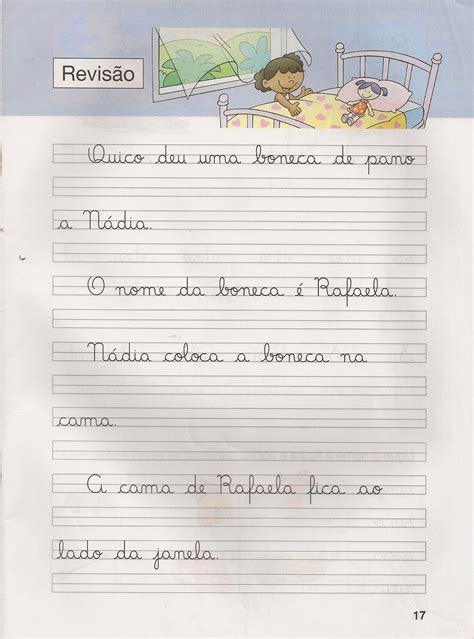 Revisão
Quico deu uma boneca de pano
a Nádia.
O nome da boneca é Rafaela.
Nádia coloca a boneca na
cama.
A cama de Rafaela fica ao
lado da janela.
17